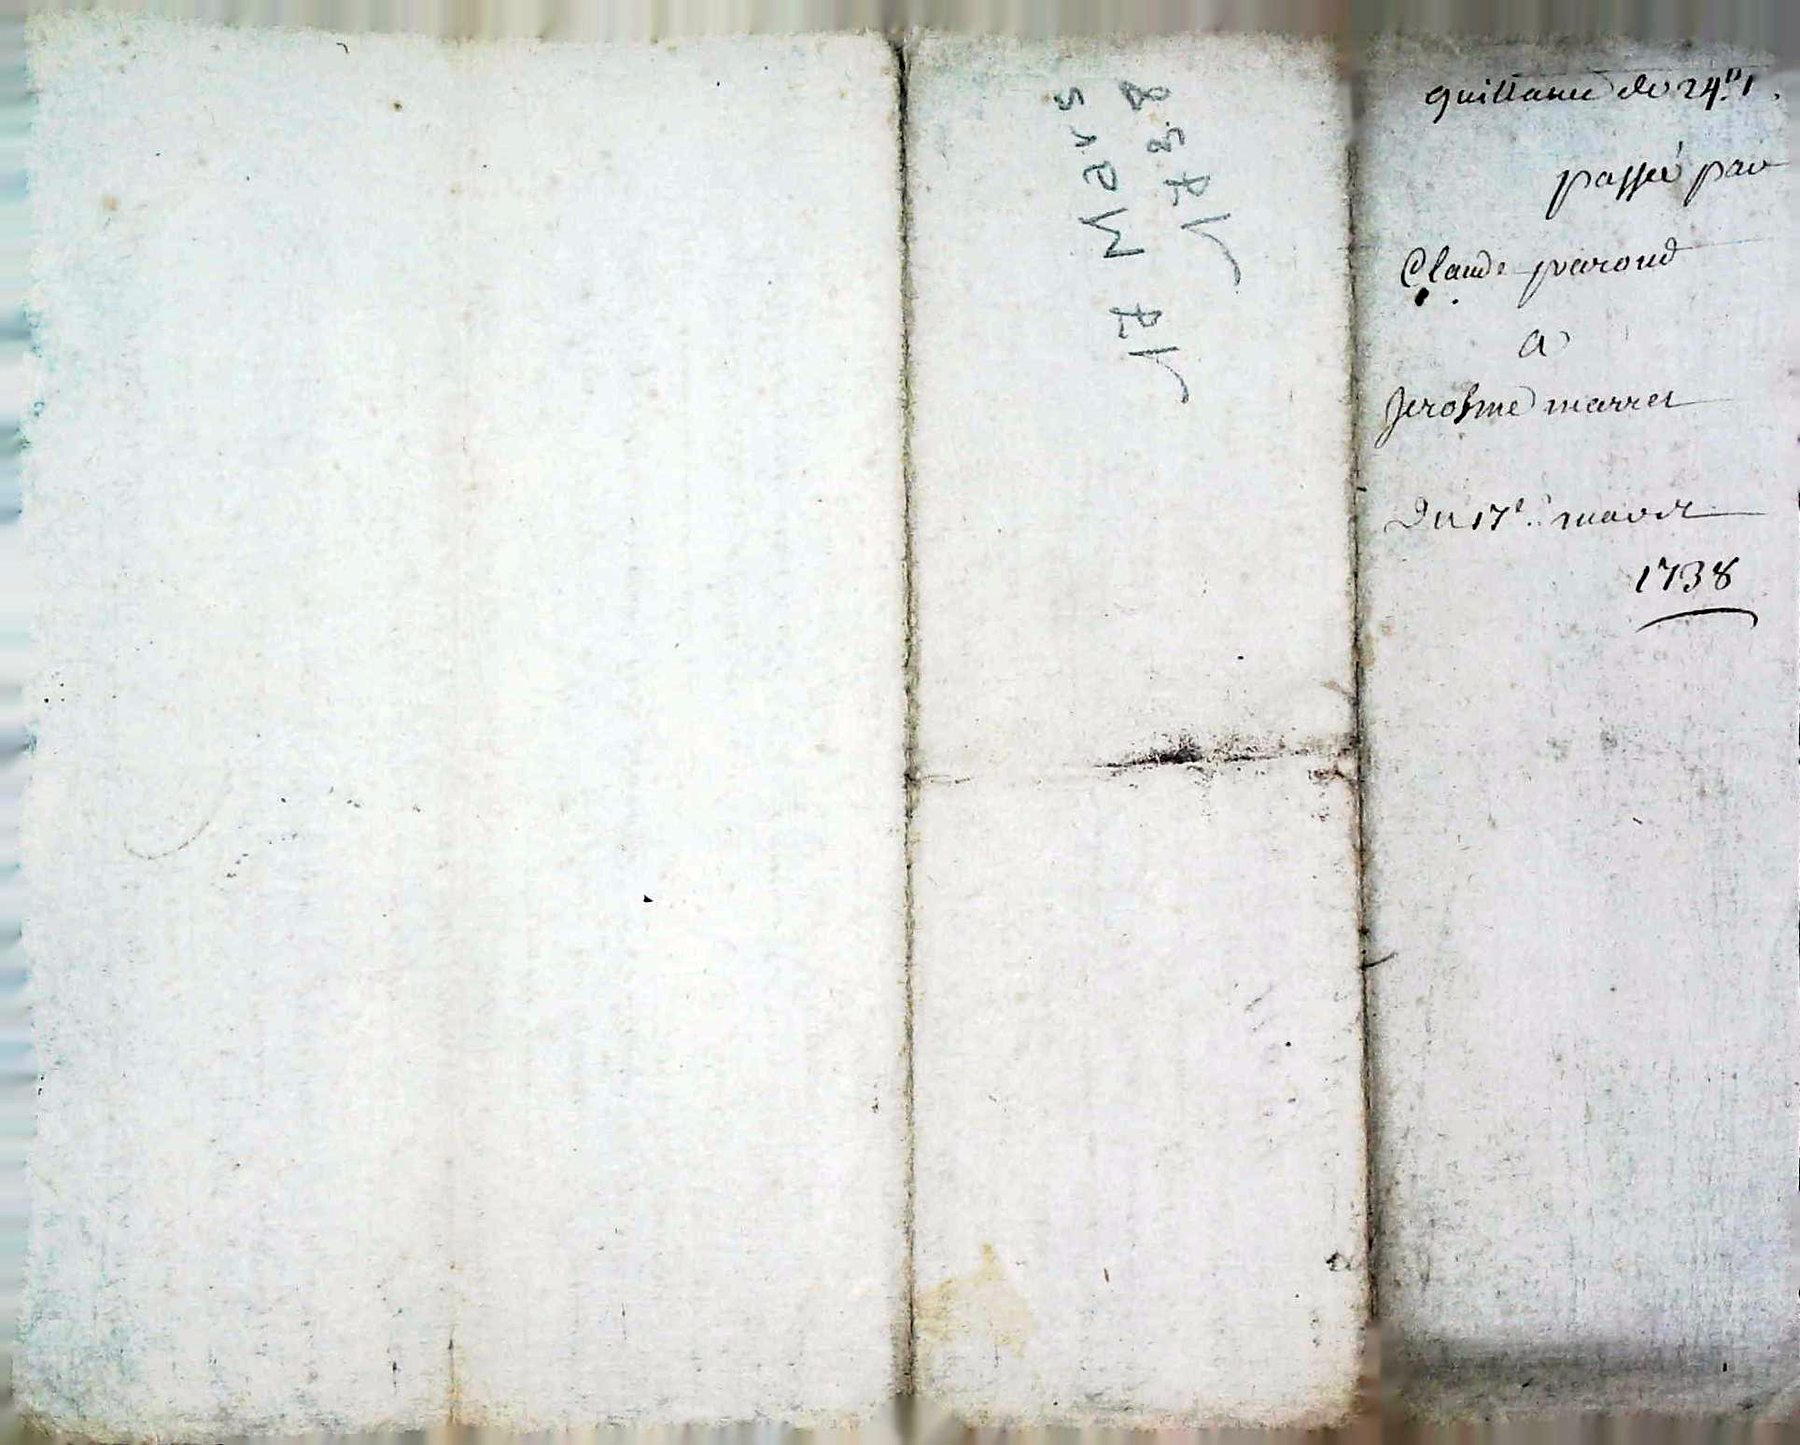 17 Mars
1738
quittance de 24ᵗᵗ 1
passée par
Claude perroud
a
Jerosme marret
Du 17ᵉ. mars
1738